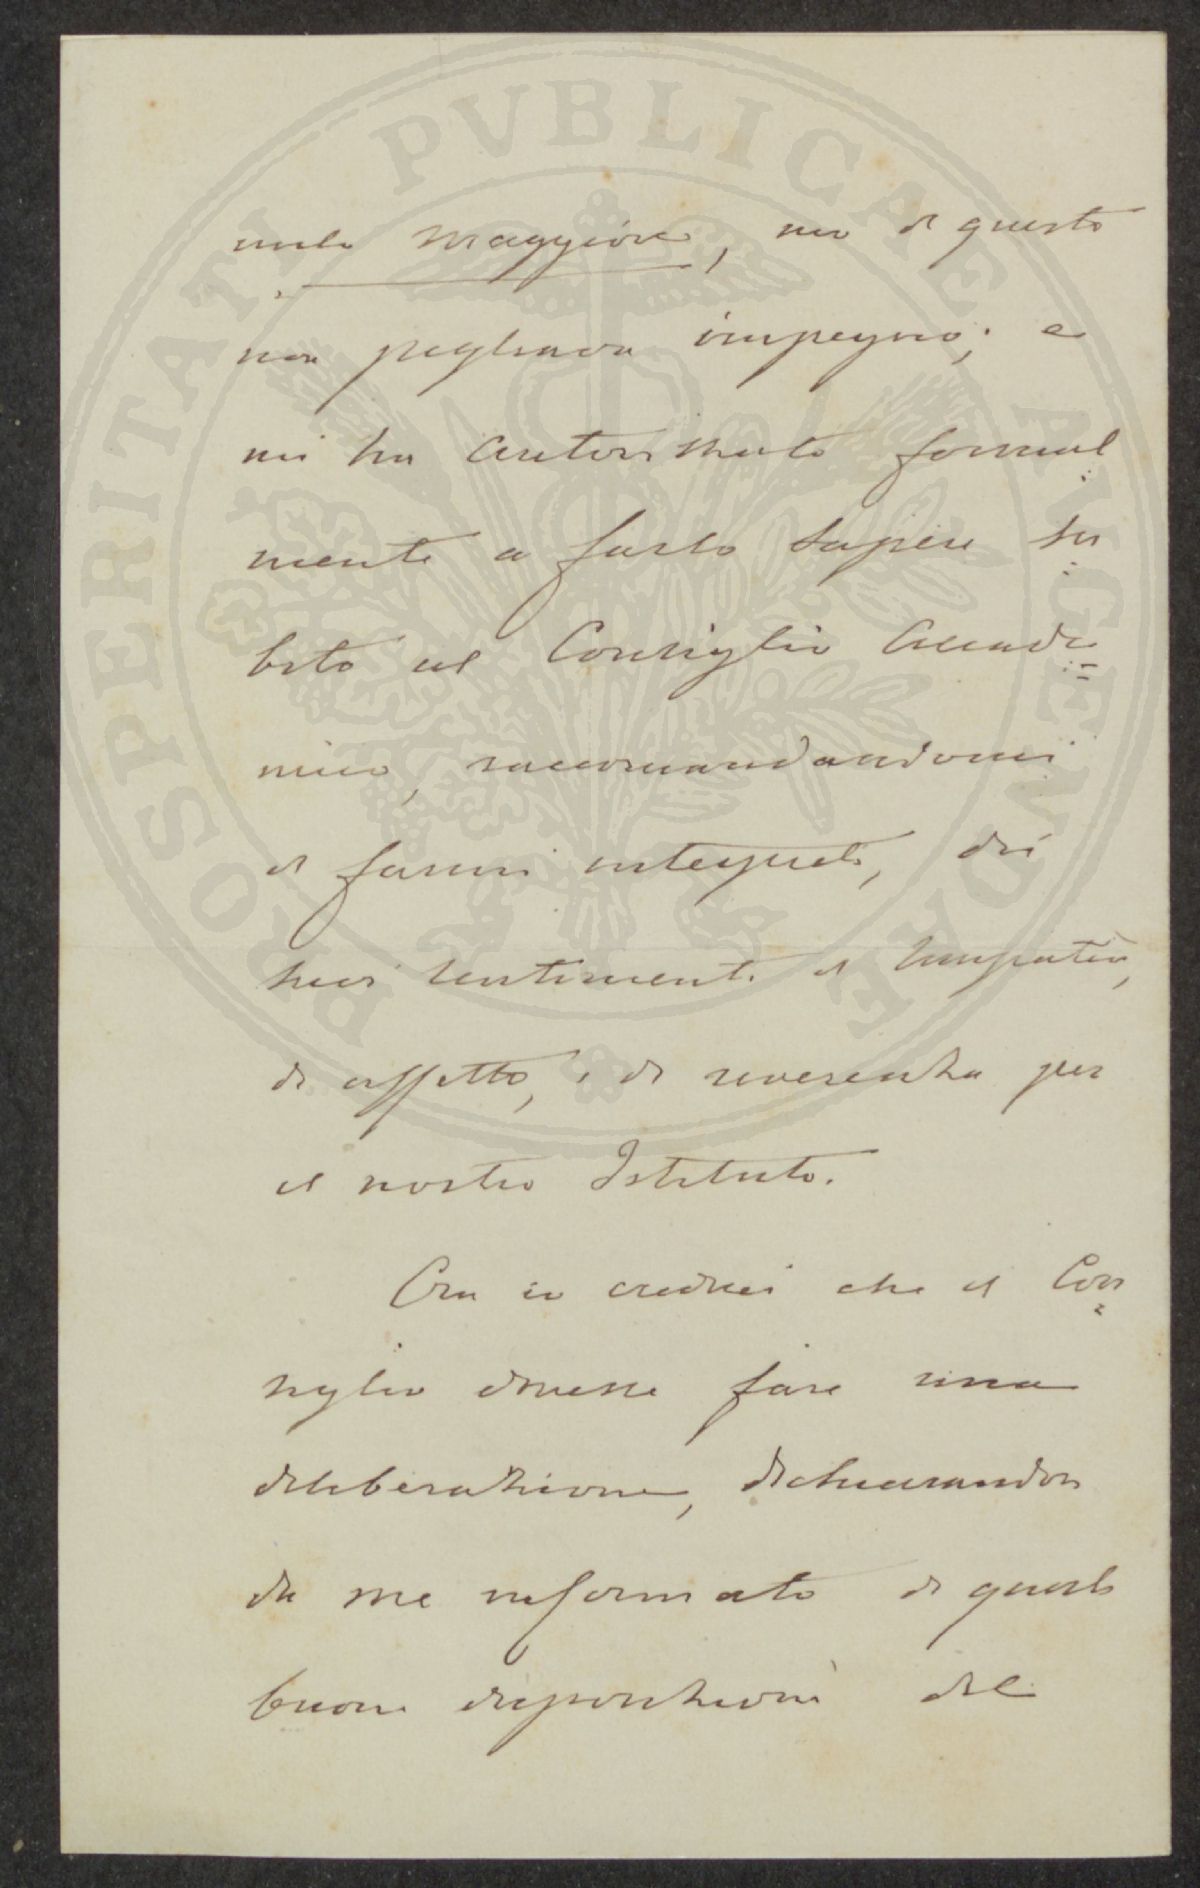 PROSPERITATI PVBLICAE AVGENDAE
maggiore, ma di questo
non pigliava impegno; e
mi ha autorizzato formal
mente a farlo sapere su
bito al Consiglio Accade
mico, raccomandandomi
di farmi interprete, dei
suoi sentimenti di simpatia,
di affetto, e di reverenza per
il nostro Istituto.
Ora io crederei che il Con
siglio dovesse fare una
deliberazione, dichiarandosi
da me informato di queste
buone disposizioni del